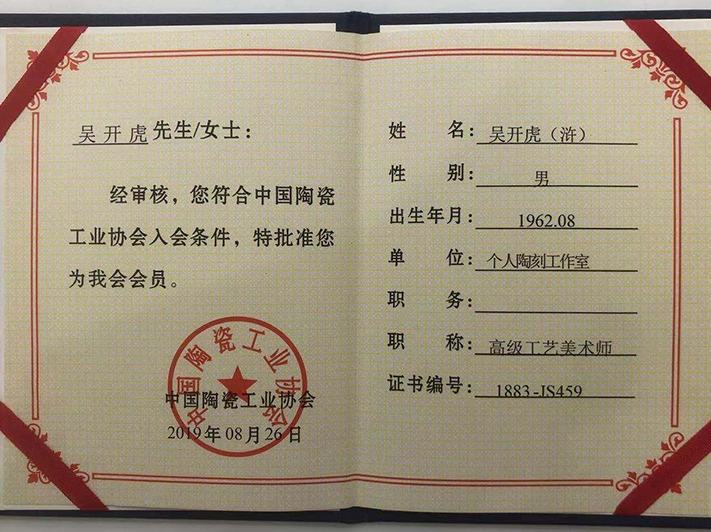 吴开虎先生/女士：
经审核，您符合中国陶瓷
工业协会入会条件，特批准您
为我会会员。
中国陶瓷工业协会
中国陶瓷工业协会
2019年08月26日
姓 名：吴开虎（浒）
性 别：男
出生年月：1962.08
单 位：个人陶刻工作室
职 务：
职 称：高级工艺美术师
证书编号：1883-JS459